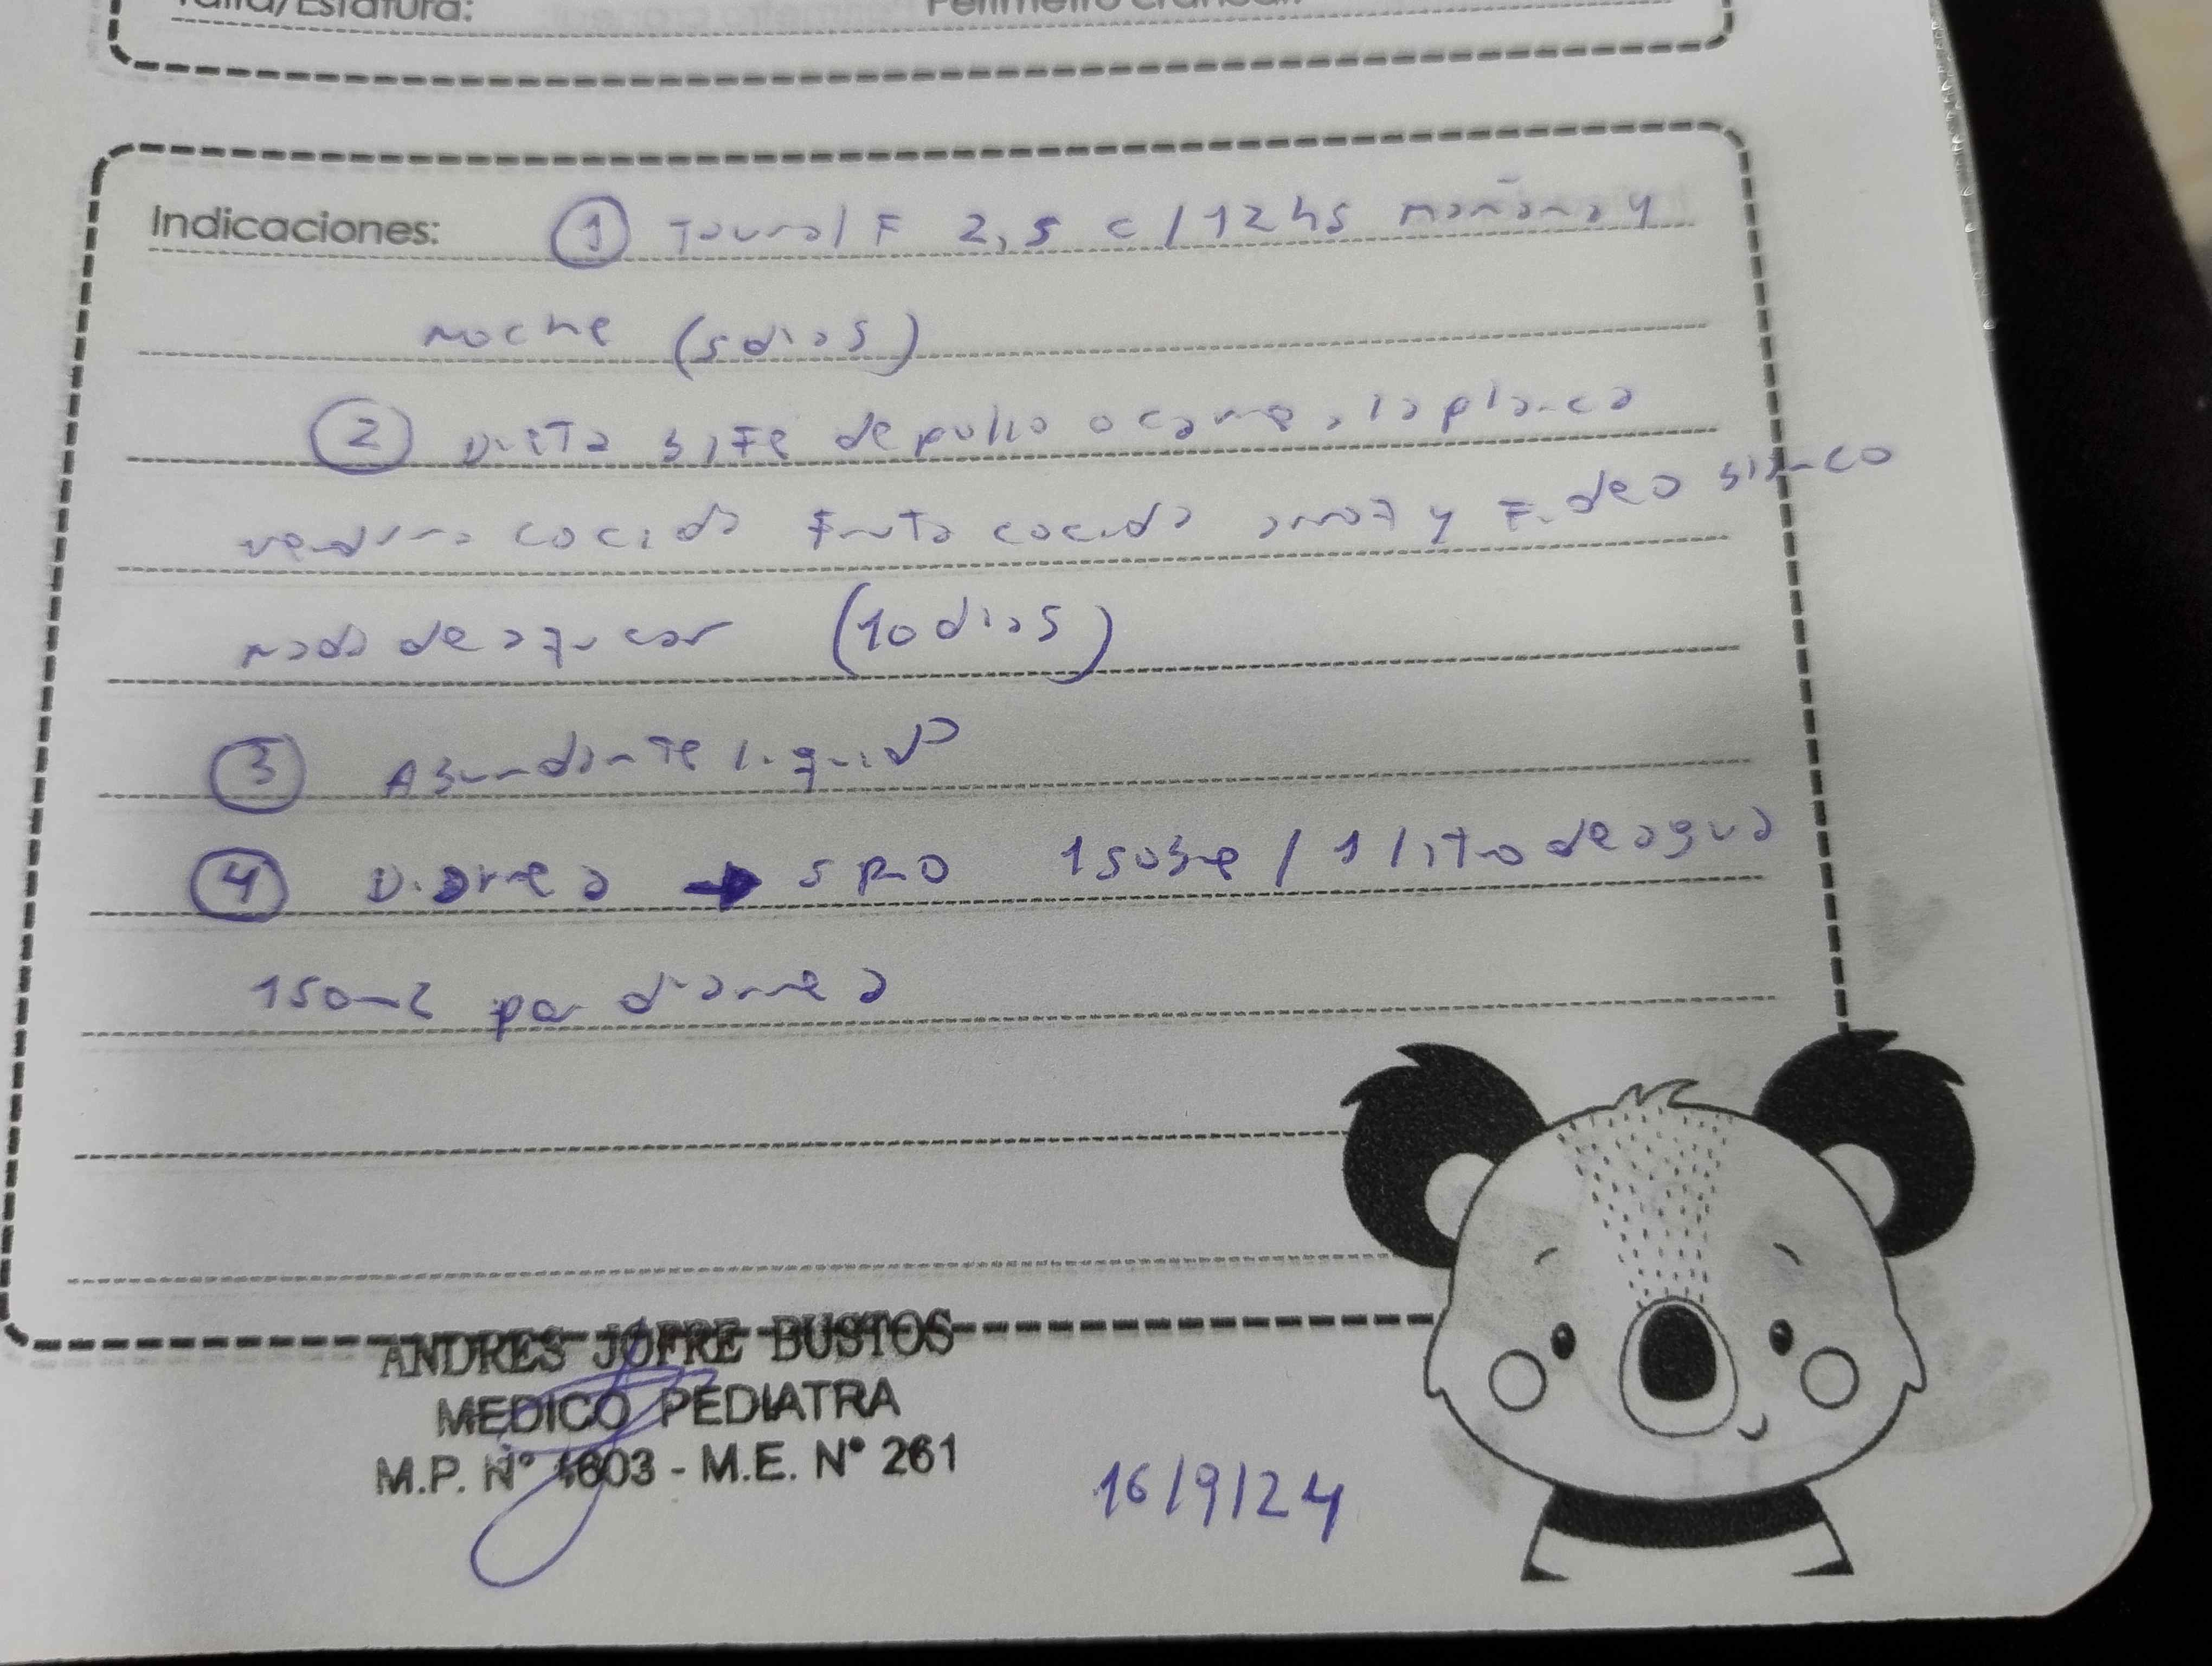 Talla/Estatura: Perímetro Craneal:
Indicaciones: ① Taural F 2,5 c/12hs mañana y
noche (5 dias)
② Dieta bife de pollo o carne a la planca
verdura cocida fruta cocida arroz y fideo blanco
nada de azucar (10 dias)
③ Abundante liquido
④ Diarrea → SRO 1 sobre / 1 litro de agua
150ml por diarrea
ANDRES JOFRE BUSTOS
MEDICO PEDIATRA
M.P. N° 1603 - M.E. N° 261
16/9/24